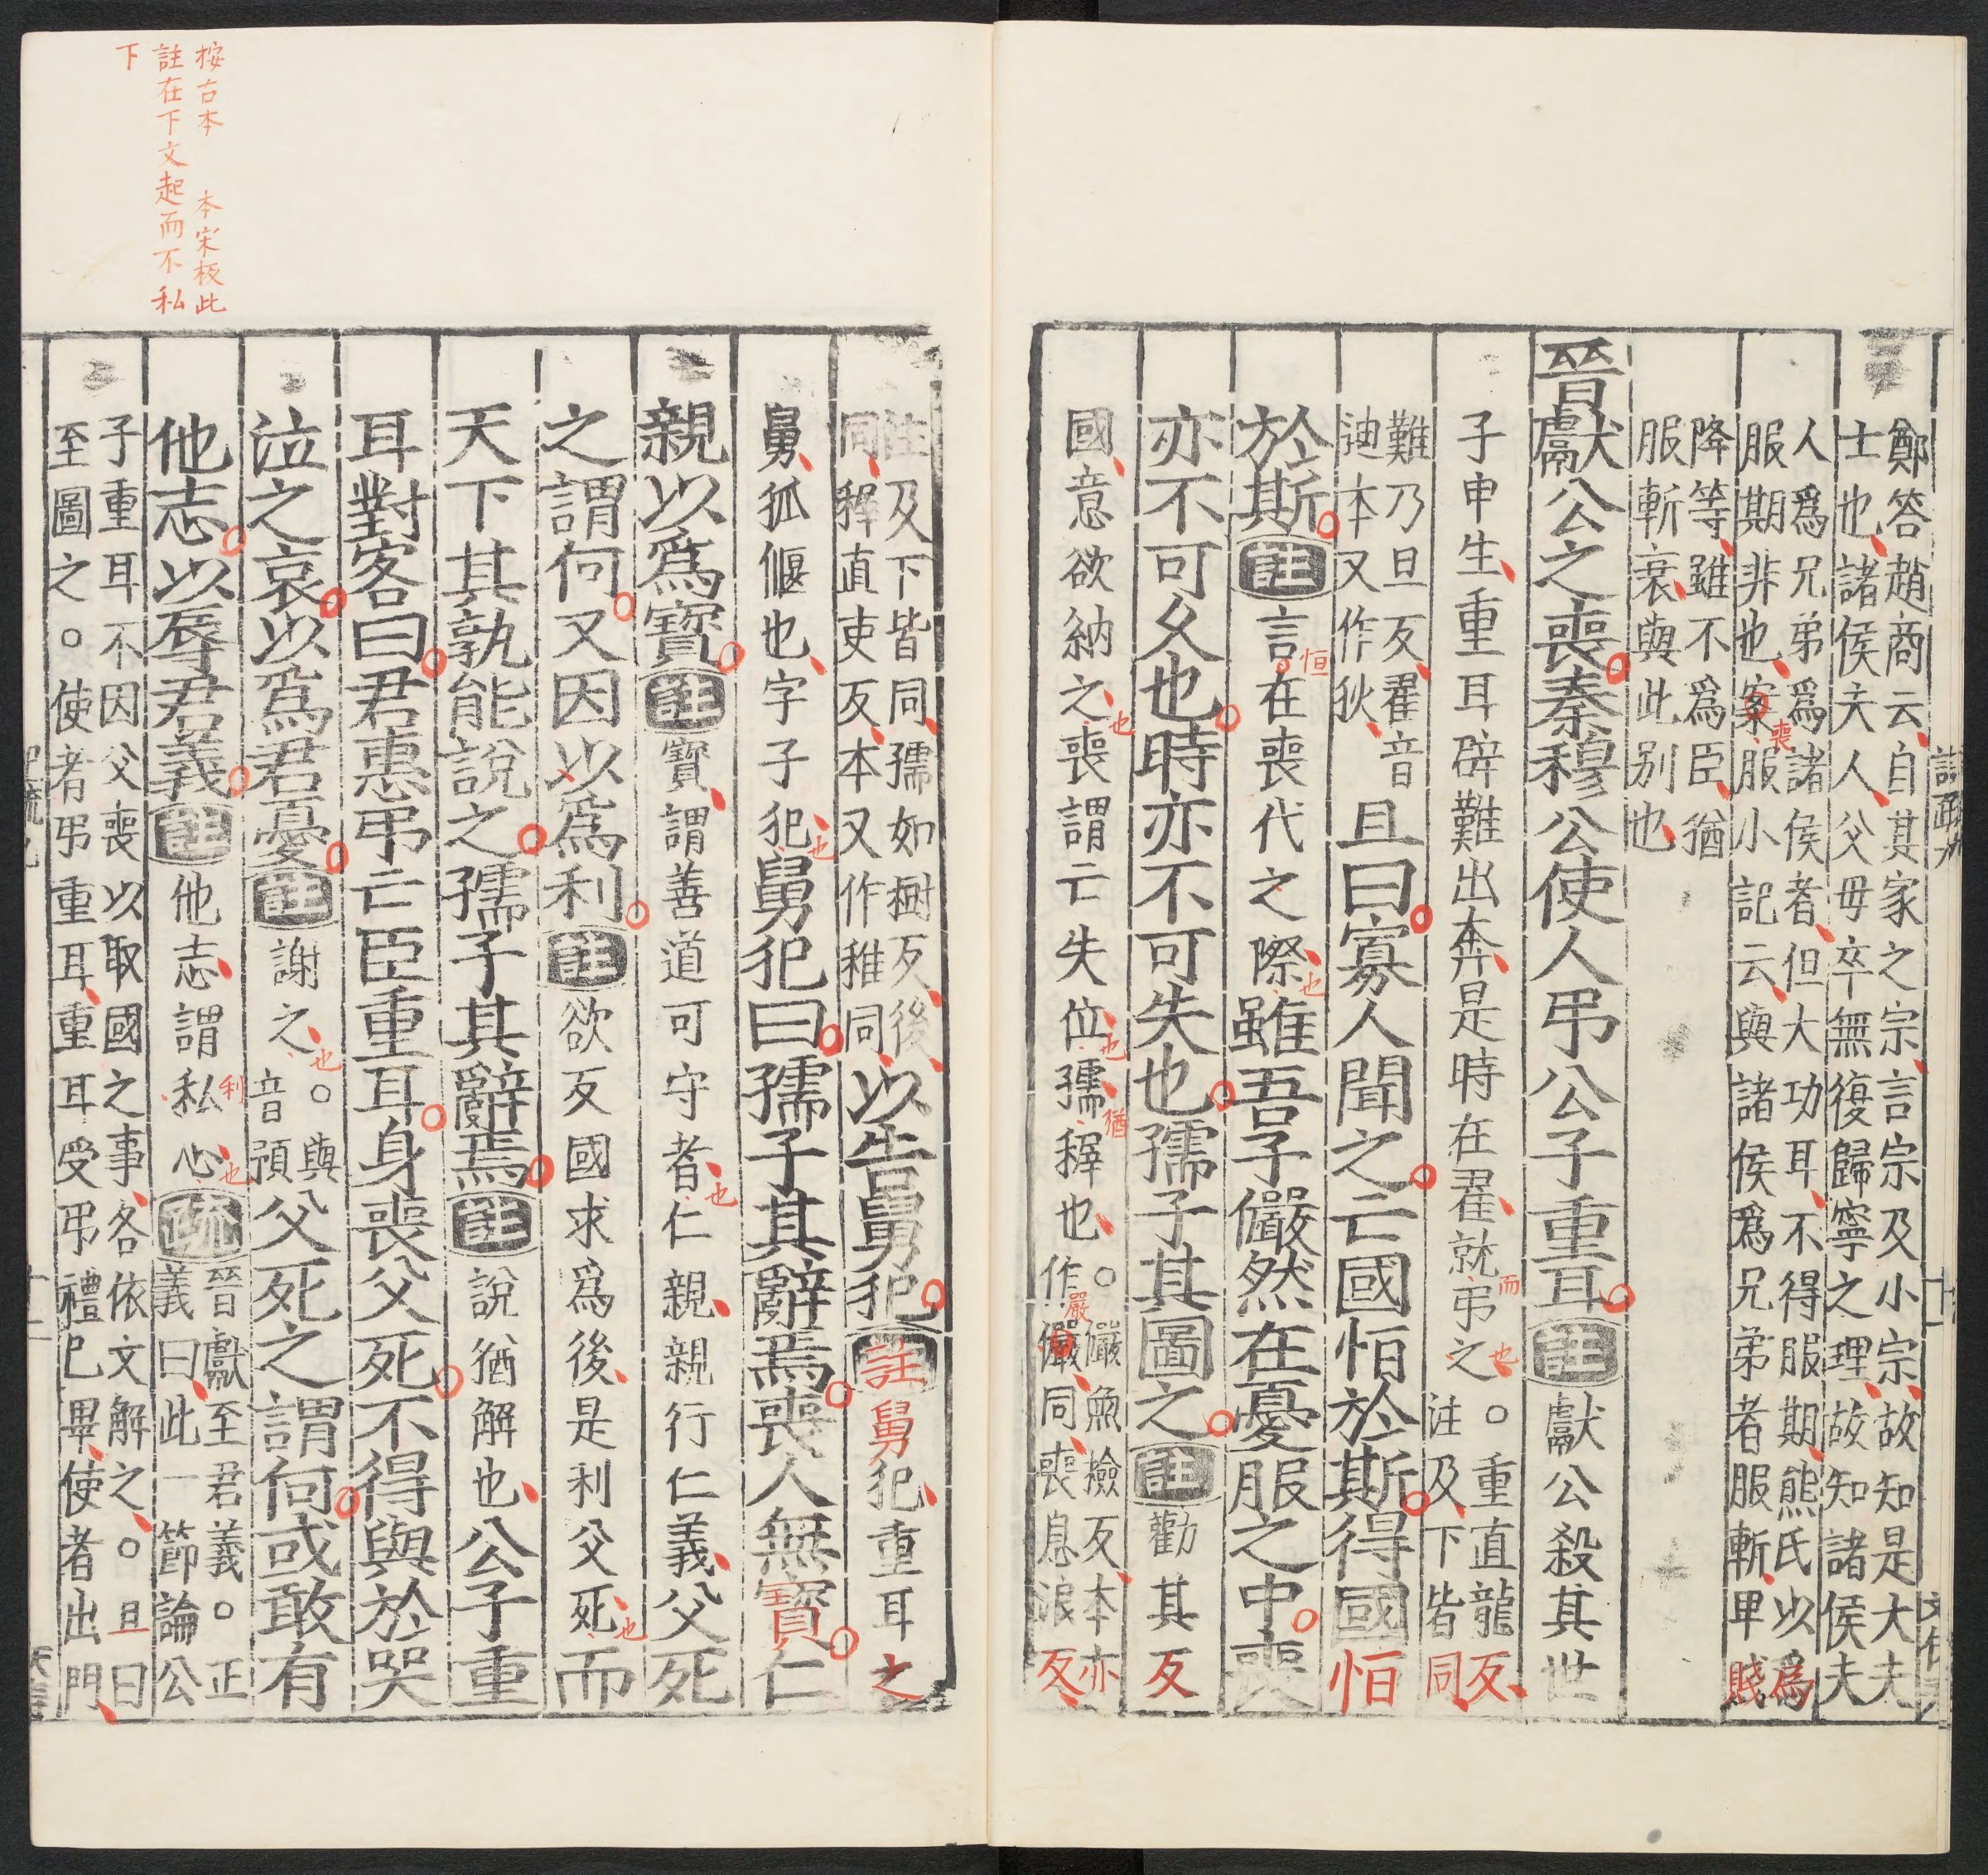 鄭答趙商云自其家之宗言宗及小宗故知是大夫
士也諸侯夫人父母卒無復歸寧之理故知諸侯夫
人爲兄弟爲諸侯者但大功耳不得服期熊氏以爲
服期非也案喪服小記云與諸侯爲兄弟者服斬卑賤
降等雖不爲臣猶
服斬衰與此別也
晉獻公之喪秦穆公使人弔公子重耳註獻公殺其世
子申生重耳辟難出奔是時在翟就而弔之也。重直龍反
注及下皆同
難乃旦反翟音
迪本又作狄
且曰寡人聞之亡國恒於斯得國恒
於斯註言恒在喪代之際也雖吾子儼然在憂服之中喪
亦不可久也時亦不可失也孺子其圖之註勸其反
國意欲納之也喪謂亡失位也孺猶稺也。儼魚檢反本亦
作嚴儼同喪息浪反
注及下皆同孺如樹反後
同稺直吏反本又作稚同
以告舅犯註舅犯重耳之
舅狐偃也字子犯也舅犯曰孺子其辭焉喪人無寶仁
親以爲寶註寶謂善道可守者也仁親親行仁義父死
之謂何又因以爲利註欲反國求爲後是利父死也而
天下其孰能說之孺子其辭焉註說猶解也公子重
耳對客曰君惠弔亡臣重耳身喪父死不得與於哭
泣之哀以爲君憂註謝之也。與
音預
父死之謂何或敢有
他志以辱君義註他志謂私利心也疏晉獻至君義。正
義曰此一節論公
子重耳不因父喪以取國之事各依文解之。且曰
至圖之。使者弔重耳重耳受弔禮已畢使者出門
按古本 本宋板此
註在下文起而不私
下